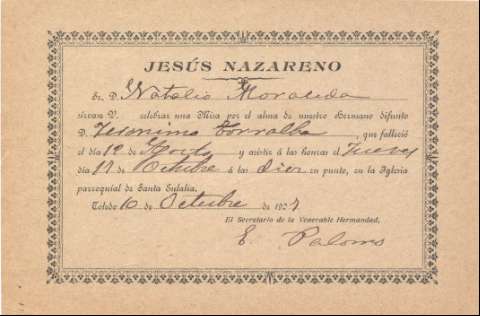 JESÚS NAZARENO
Sr. D. Natalio Moraleda
sírvase V. celebrar una Misa por el alma de nuestro Hermano difunto
D. Jeronimo Torralba, que falleció
el día 12 de Agosto y asistir á las honras el Jueves
día 17 de Octubre á las diez en punto, en la Iglesia
parroquial de Santa Eulalia.
Toledo 10 de Octubre de 192
El Secretario de la Venerable Hermandad,
E. Palomo